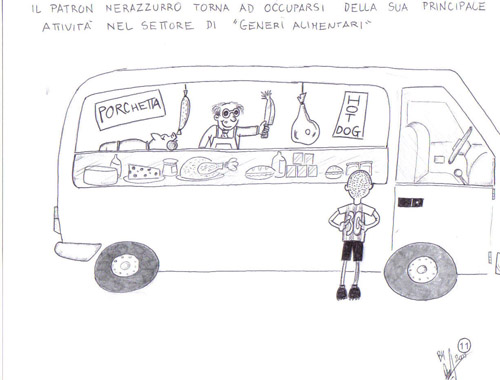 IL PATRON NERAZZURRO TORNA AD OCCUPARSI DELLA SUA PRINCIPALE
ATTIVITÀ NEL SETTORE DI "GENERI ALIMENTARI"
PORCHETTA
HOT
DOG
11